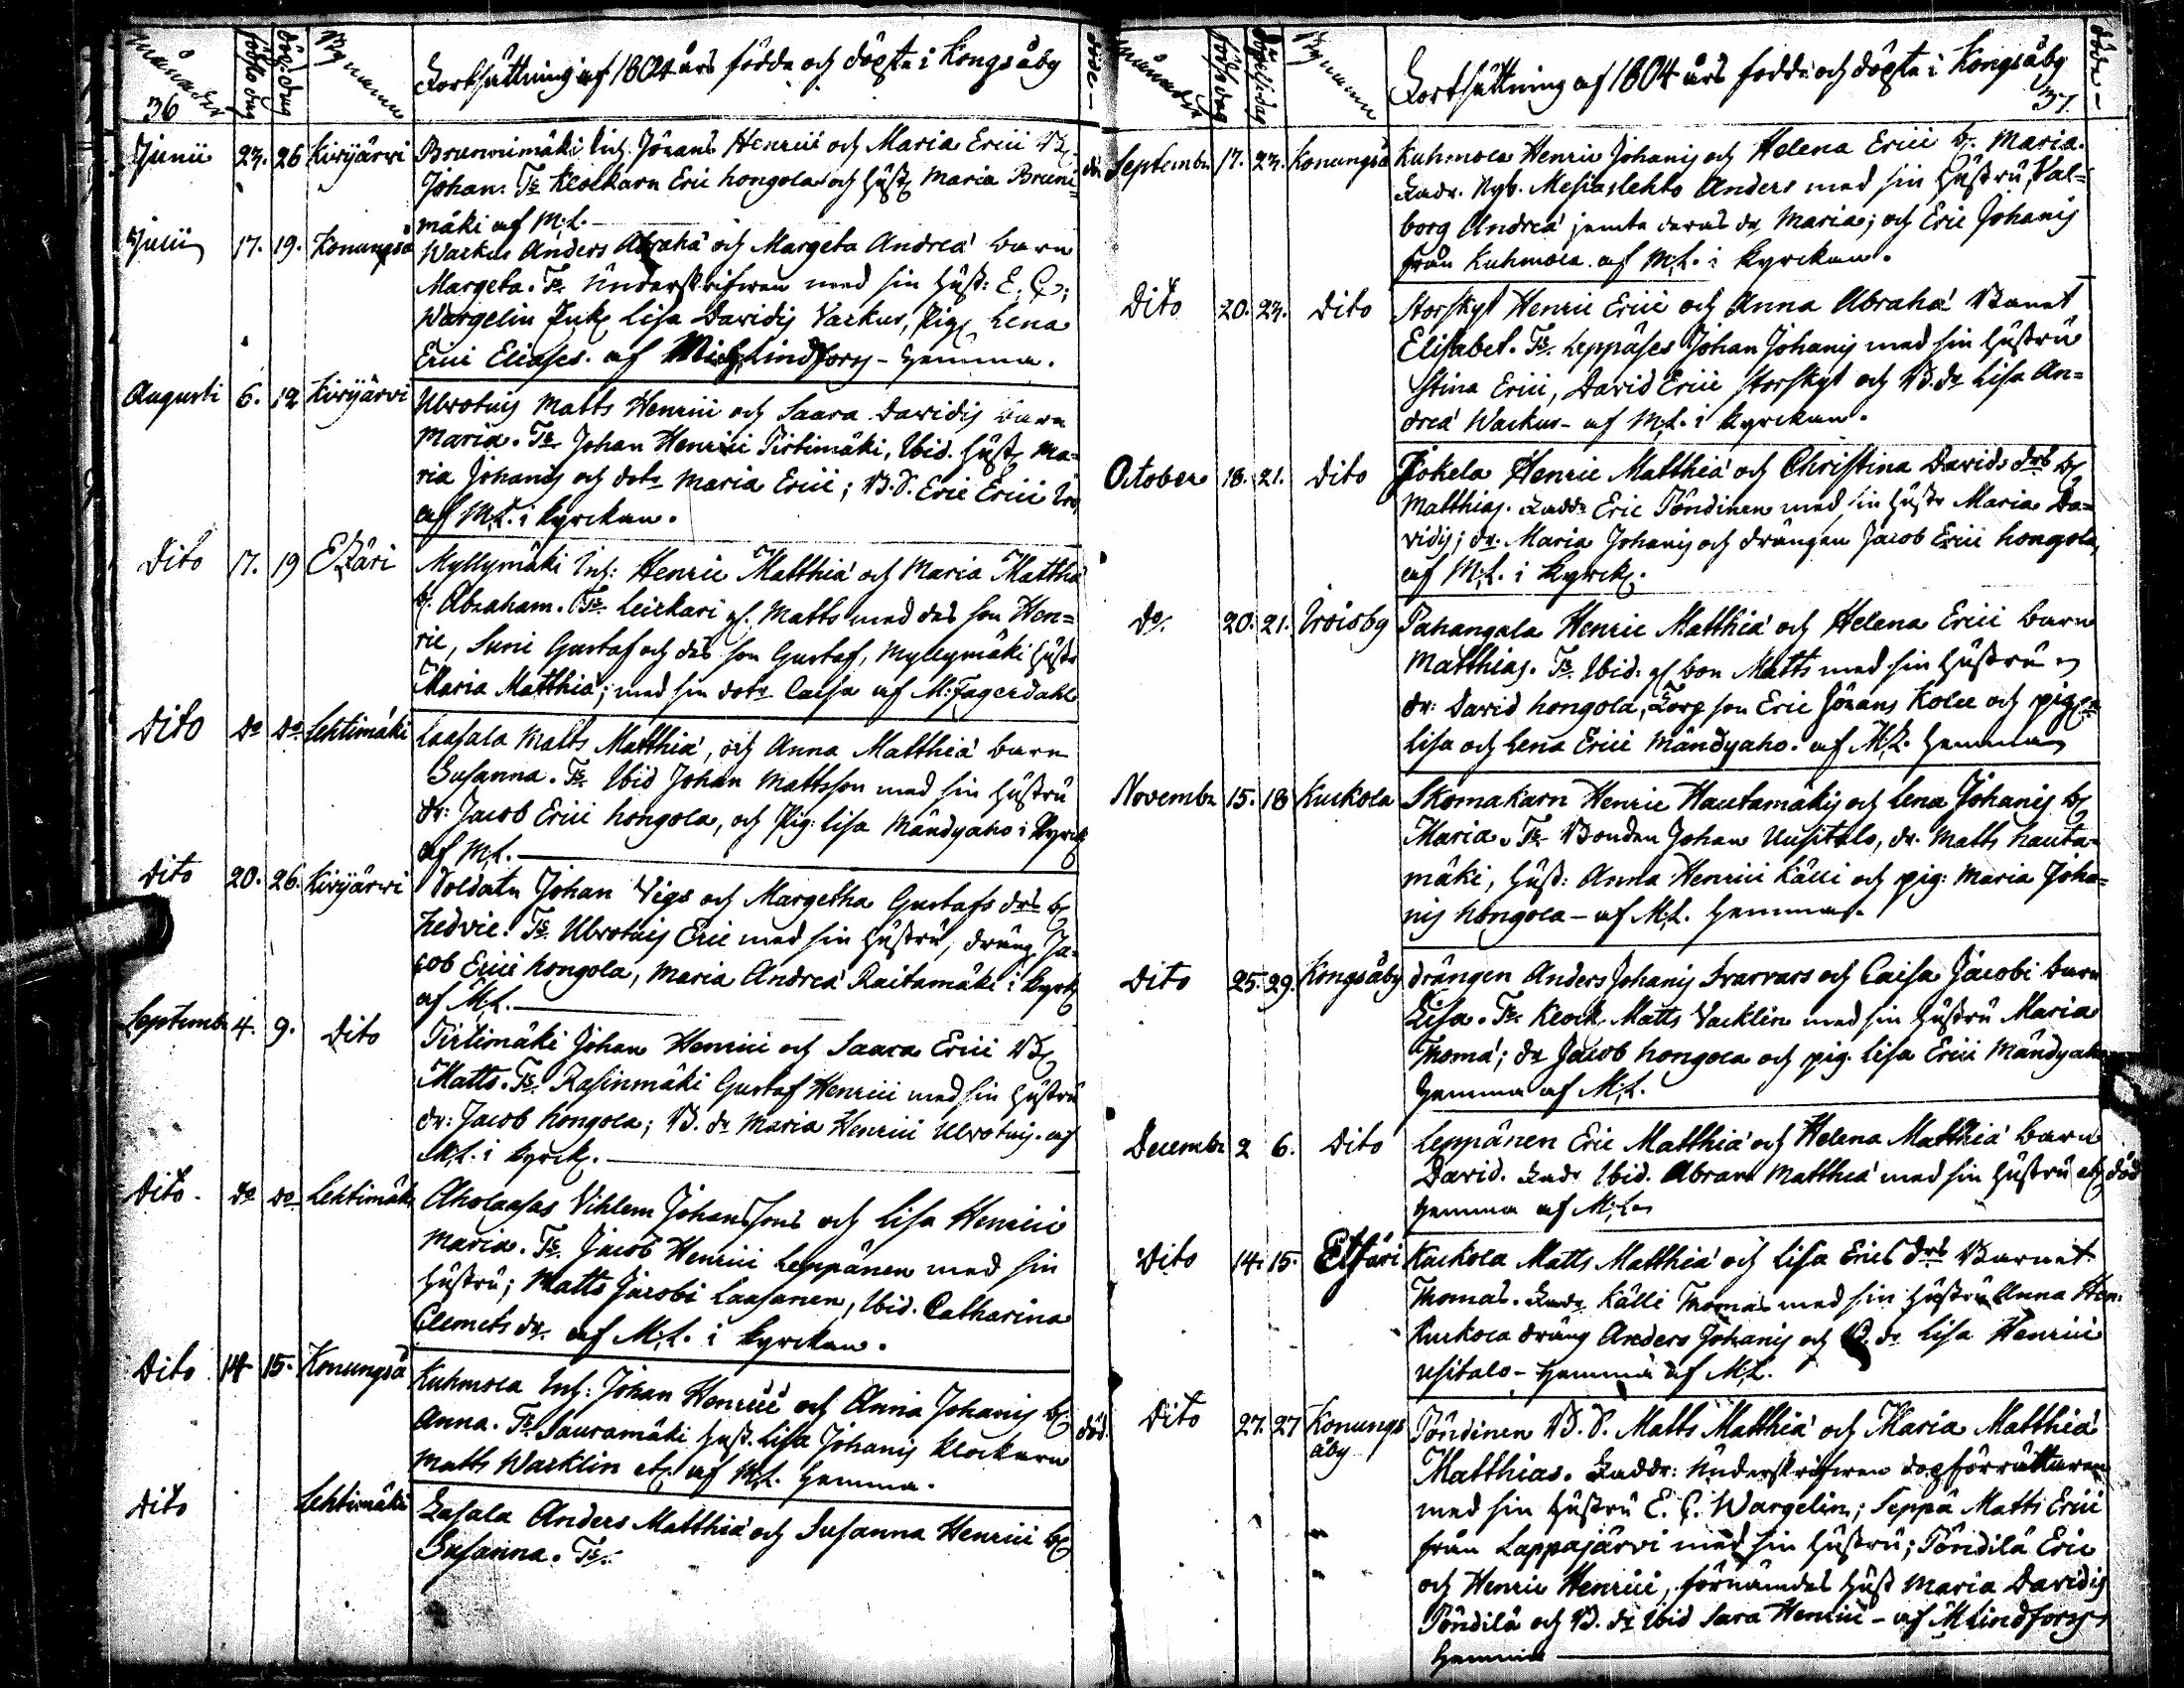 Månader födslo dag döp. dag Bynamn Fortsättning af 1804 års födde och döpte i Kongsåby döde
36
Junii 23. 26 Kivijärwi Brunnimäki Inh. Jörans Henrici och Maria Erici B.
Johan. Ts Klockarn Eric hongola och Hust. Maria Bruni-
mäki af M:L.
Julii 17. 19. Konungså Warkus Anders Abrahä och Margeta Andreä barn
Margeta. Ts Underskrifwen med sin Hust: E. C.
Wargelin Enk. Lisa Davidis Varkus, Pig. Lena
Erici Eliases. af Mich. Lindfors – hemma.
Augusti 6. 12 Kivijärvi Ulvotuis Matts Henrici och Saara Davidis barn
Maria. Ts Johan Henrici Tirtimäki, Ibid. Hust. Ma-
ria Johanis och dotr Maria Erici; B.S. Eric Erici
af M.L. i kyrckan.
Dito 17. 19 Etzäri Myllymäki Inh: Henric Matthiä och Maria Matthiä
b. Abraham. Ts Leickari gl. Matts med des son Hen=
ric, Suni Gustaf och des son Gustaf, Myllymäki Hustr
Maria Matthiä; med sin dotr Caisa af M: Fagerdahl
Dito do do Lehtimäki Laasala Matts Matthiä, och Anna Matthiä barn
Susanna. Ts Ibid Johan Mattsson med sin Hustru
dr: Jacob Erici hongola, och Pig: Lisa Mändyaho i Kyrck
af M.L.
Dito 20. 26. Kivijärwi Soldatn Johan Vigs och Margetha Gustafs drs b.
Hedvic. Ts Ulvotuis Eric med sin Hustru, dräng Ja-
cob Erici hongola, Maria Andreä Raitamäki i kyrk
af M:L.
Septembr 4. 9. Dito Tirtimäki Johan Henrici och Saara Erici B.
Matts. Ts Rasinmäki Gustaf Henrici med sin Hustru
dr: Jacob hongola; B. dr Maria Henrici Ulvotuis. af
M.L. i kyrck.
Dito do do Lehtimäki Aholaasas Vihlem Johanssons och Lisa Henrici
Maria. Ts Jacob Henrici Leppänen med sin
Hustru; Matts Jacobi Laasanen, Ibid. Catharina
Clemets dr af M.L. i kyrckan.
Dito 14 15. Konungså Kuhmola Inh: Johan Henrici och Anna Johanis b.
Anna. Ts Sauramäki Hust. Lisa Johanis Klockarn död
Matts Warklin etc. af M.L. hemma.
Dito Lehtimäki Lasala Anders Matthiä och Susanna Henrici b.
Susanna. Ts
Månader födslo dag döpelse dag Bynamn Fortsättning af 1804 års födde och döpte i Kongsåby döde
37.
Septembr 17. 23. Konungså Kuhmola Henric Johanis och Helena Erici b. Maria.
Fadr. Nyb. Mesiaslehto Anders med sin Hustru, Val-
borg Andreä jemte deras dr Maria; och Eric Johanis
från Kuhmola. af M.L. i kyrckan.
Dito 20. 23. Dito Storskyt Henric Erici och Anna Abrahä Barnet
Elisabet. Ts Leppäses Johan Johanis med sin Hustru
Stina Erici, David Erici Storskyt och B. dr Lisa An-
dreä Warkus – af M.L. i kyrckan.
October 18. 21. Dito Jokela Henric Matthiä och Christina Davids drs b.
Matthias. Faddr Eric Töndinen med sin Hustr Maria Da-
vidis; dr. Maria Johanis och drängen Jacob Erici hongola,
af M.L. i kyrck.
Do 20. 21. Irvisby Pahangala Henric Matthiä och Helena Erici barn
Matthias. Ts Ibid. gl bon Matts med sin Hustru
dr: David hongola, Torp son Eric Jörans Kolu och pig.
Lisa och Lena Erici Mändyaho. af M.L. hemma
Novembr 15. 18 Kuckola Skomakarn Henric Hautamäkis och Lena Johanis b.
Maria. Ts Bonden Johan Uusitalo, dr. Matts hauta-
mäki, Hust: Anna Henrici Källi och pig: Maria Joha-
nis hongola – af M.L. hemma.
Dito 25. 29. Kongsåby drängen Anders Johanis Svarvars och Caisa Jacobi barn
Lisa. Ts. Klock. Matts Vacklin med sin Hustru Maria
Thomä; dr Jacob hongola och pig. Lisa Erici Mändyaho
hemma af M.L.
Decembr 2 6. Dito Leppänen Eric Matthiä och Helena Matthiä barn
David. Fadr Ibid. Abram Matthiä med sin Hustru etc död
hemma af M.L.
Dito 14. 15. Etzäri Kuckola Matts Matthiä och Lisa Erics drs Barnet
Thomas. Fadr Källi Thomas med sin Hustru Anna Hen:
Kuckola dräng Anders Johanis och B. dr Lisa Henrici
usitalo – hemma af M.L.
Dito 27. 27 Konungs Töndinen B. S. Matts Matthiä och Maria Matthiä
åby
Matthias. Faddr: Underskrifwen dopförrättaren
med sin Hustru E. C. Wargelin; Seppä Matts Erici
från Lappajärvi med sin Hustru; Töndilä Eric
och Henric Henrici, förnämdes Hust Maria Davidis
Töndilä och B. dr Ibid Sara Henrici – af M Lindfors
hemma